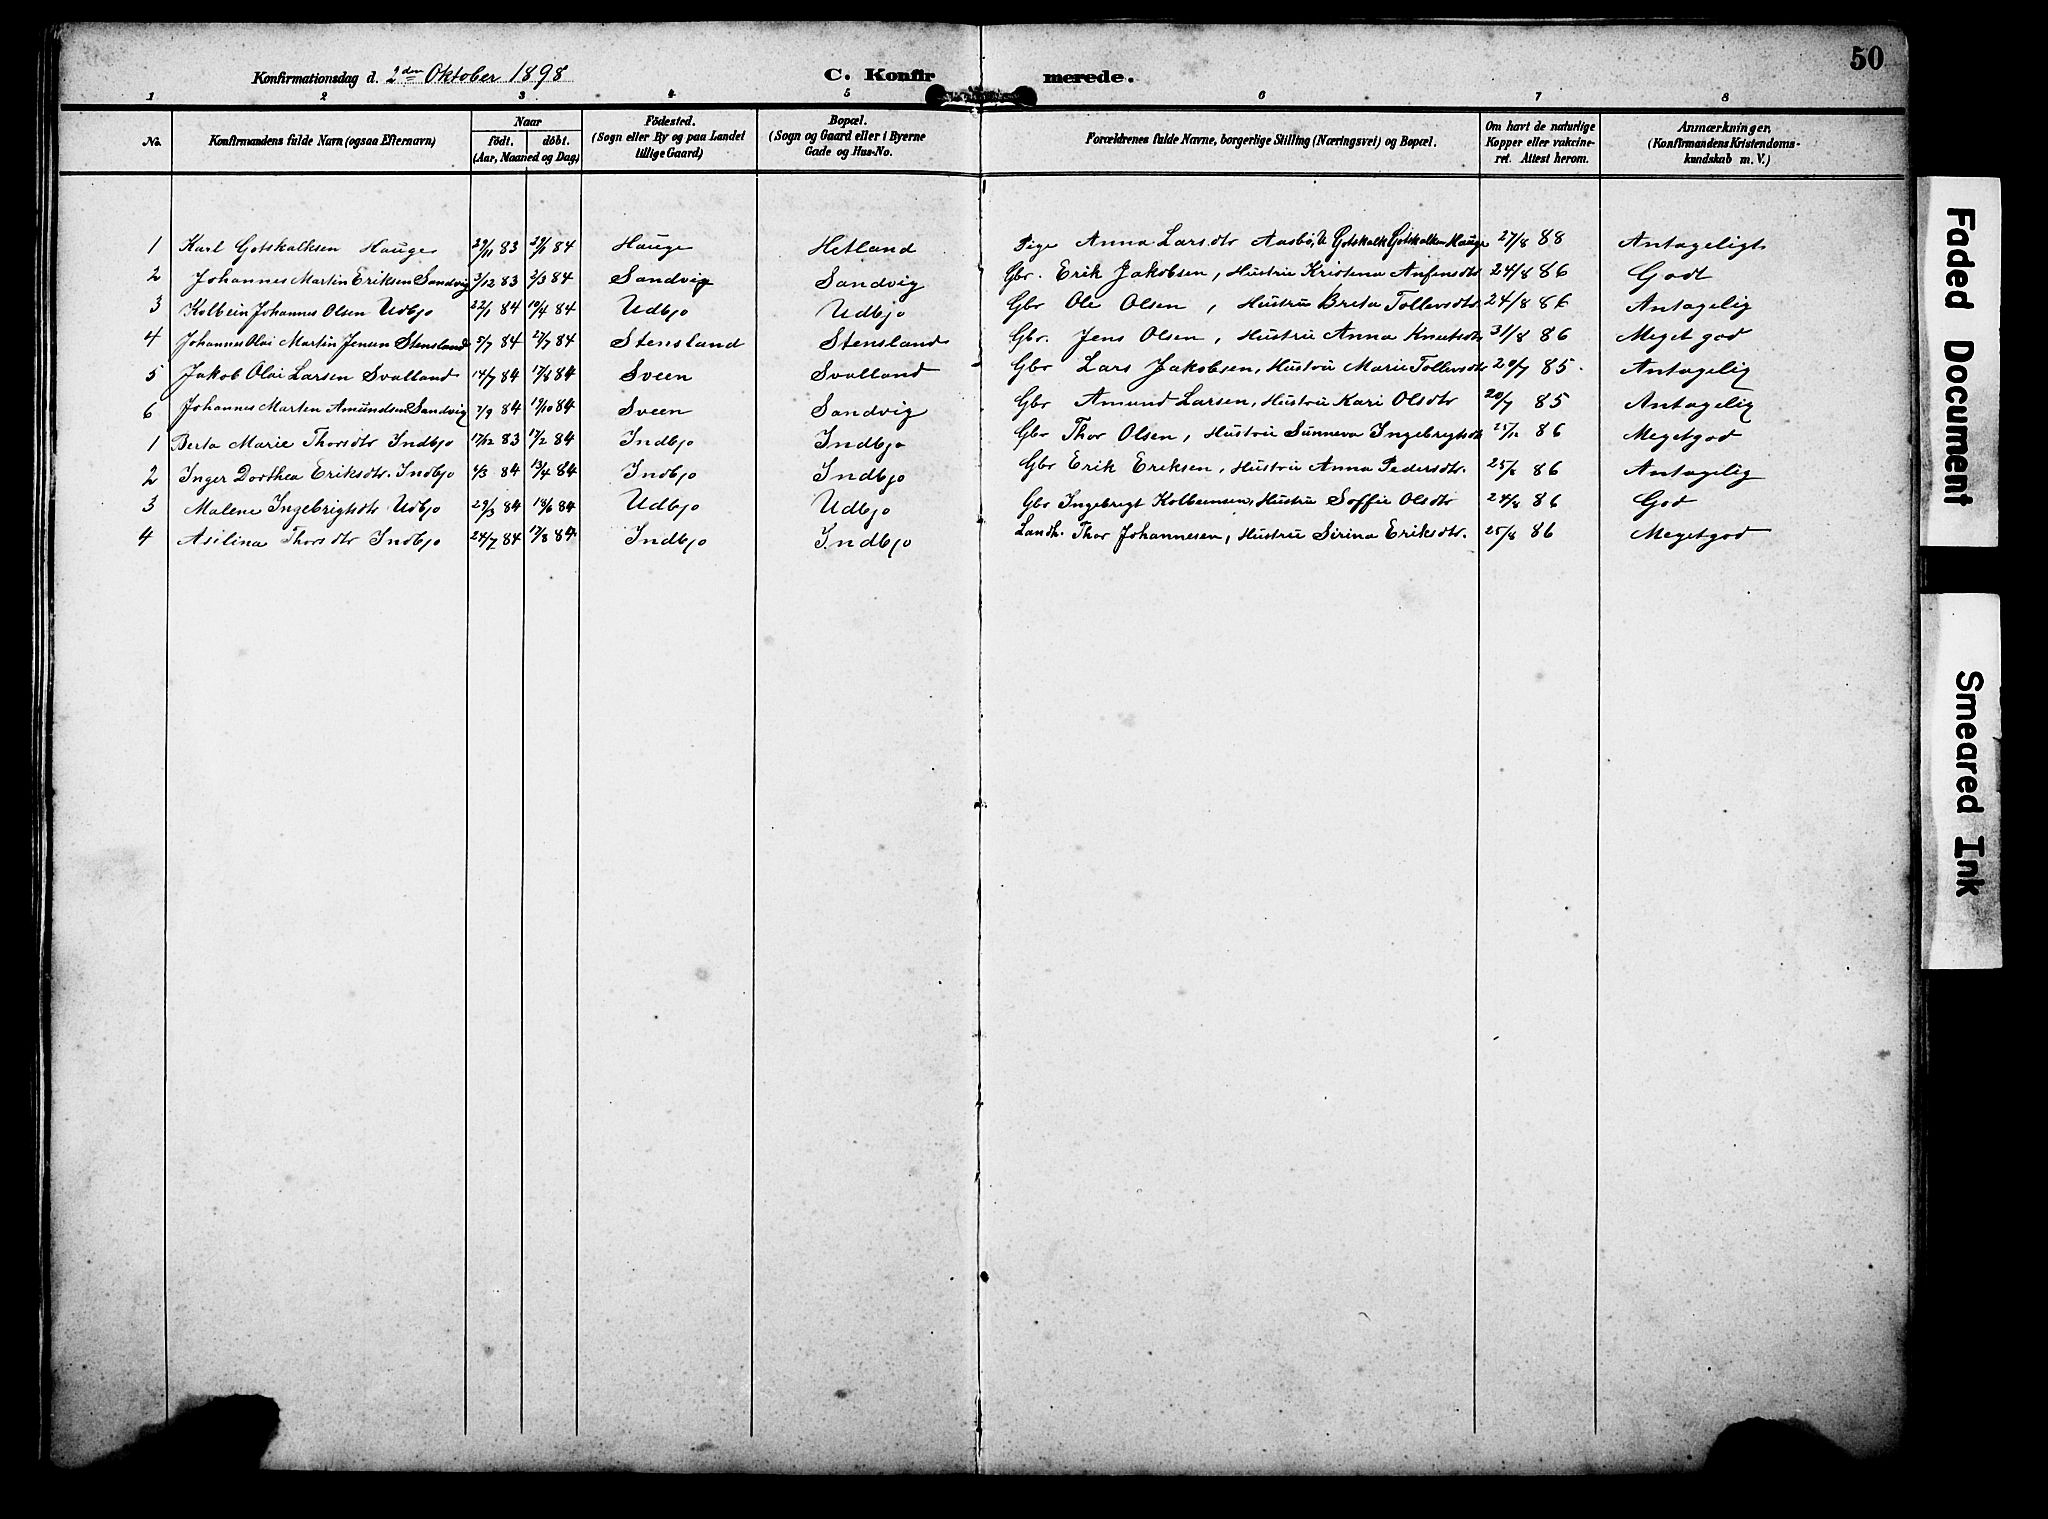 50
Konfirmationsdag d. 2den Oktober 1898 C. Konfirmerede.
1 2 3 4 5 6 7 8
No. Konfirmandens fulde Navn (ogsaa Efternavn) Naar födt. döbt. (Aar, Maaned og Dag) Födested. (Sogn eller By og paa Landet tillige Gaard) Bopæl. (Sogn og Gaard eller i Byerne Gade og Hus-No. Forældrenes fulde Navne, borgerlige Stilling (Næringsvei) og Bopæl. Om havt de naturlige Kopper eller vakcineret. Attest herom. Anmærkninger. (Konfirmandens Kristendomskundskab m. V.)
1 Karl Gotskalksen Hauge 29/11 83 29/1 84 Hauge Hetland Pige Anna Larsdtr Aasbö, Gotskalk Gotskalksen Hauge 27/8 88 Antageligt
2 Johannes Martin Eriksen Sandvig 3/12 83 2/3 84 Sandvig Sandvig Gbr. Erik Jakobsen, Hustru Kristena Anfensdtr 24/8 86 Godt
3 Kolbein Johannes Olsen Udbjo 22/1 84 10/4 84 Udbjo Udbjo Gbr Ole Olsen, Hustru Breta Tollevsdtr 24/8 86 Antagelig
4 Johannes Olai Martin Jensen Stensland 5/7 84 27/7 84 Stensland Stensland Gbr. Jens Olsen, Hustru Anna Knutsdtr 31/8 86 Meget god
5 Jakob Olai Larsen Svalland 14/7 84 17/8 84 Sveen Svalland Gbr Lars Jakobsen, Hustru Marie Tollevsdtr 20/7 85. Antagelig
6 Johannes Martin Amundsen Sandvig 7/9 84 19/10 84 Sveen Sandvig Gbr Amund Larsen, Hustru Kari Olsdtr 20/7 85 Antagelig
1 Berta Marie Thorsdtr Indbjo 17/12 83 17/2 84 Indbjo Indbjo Gbr Thor Olsen, Hustru Sunneva Ingebrigtsdtr 86 Megetgod
2 Inger Dorthea Eriksdtr. Indbjo 4/3 84 13/4 84 Indbjo Indbjo Gbr Erik Eriksen, Hustru Anna Pedersdtr. 25/8 86 Antagelig
3 Malene Ingebrigtsdtr Udbjo 29/3 84 18/6 84 Udbjo Udbjo Gbr Ingebrigt Kolbeensen, Hustru Soffie Olsdtr 24/8 86 God
4 Asilina Thorsdtr Indbjo 24/7 84 17/8 84 Indbjo Indbjo Landh. Thor Johannesen, Hustru Sirina Eriksdtr. 25/8 86 Megetgod
Faded Document
Smeared Ink